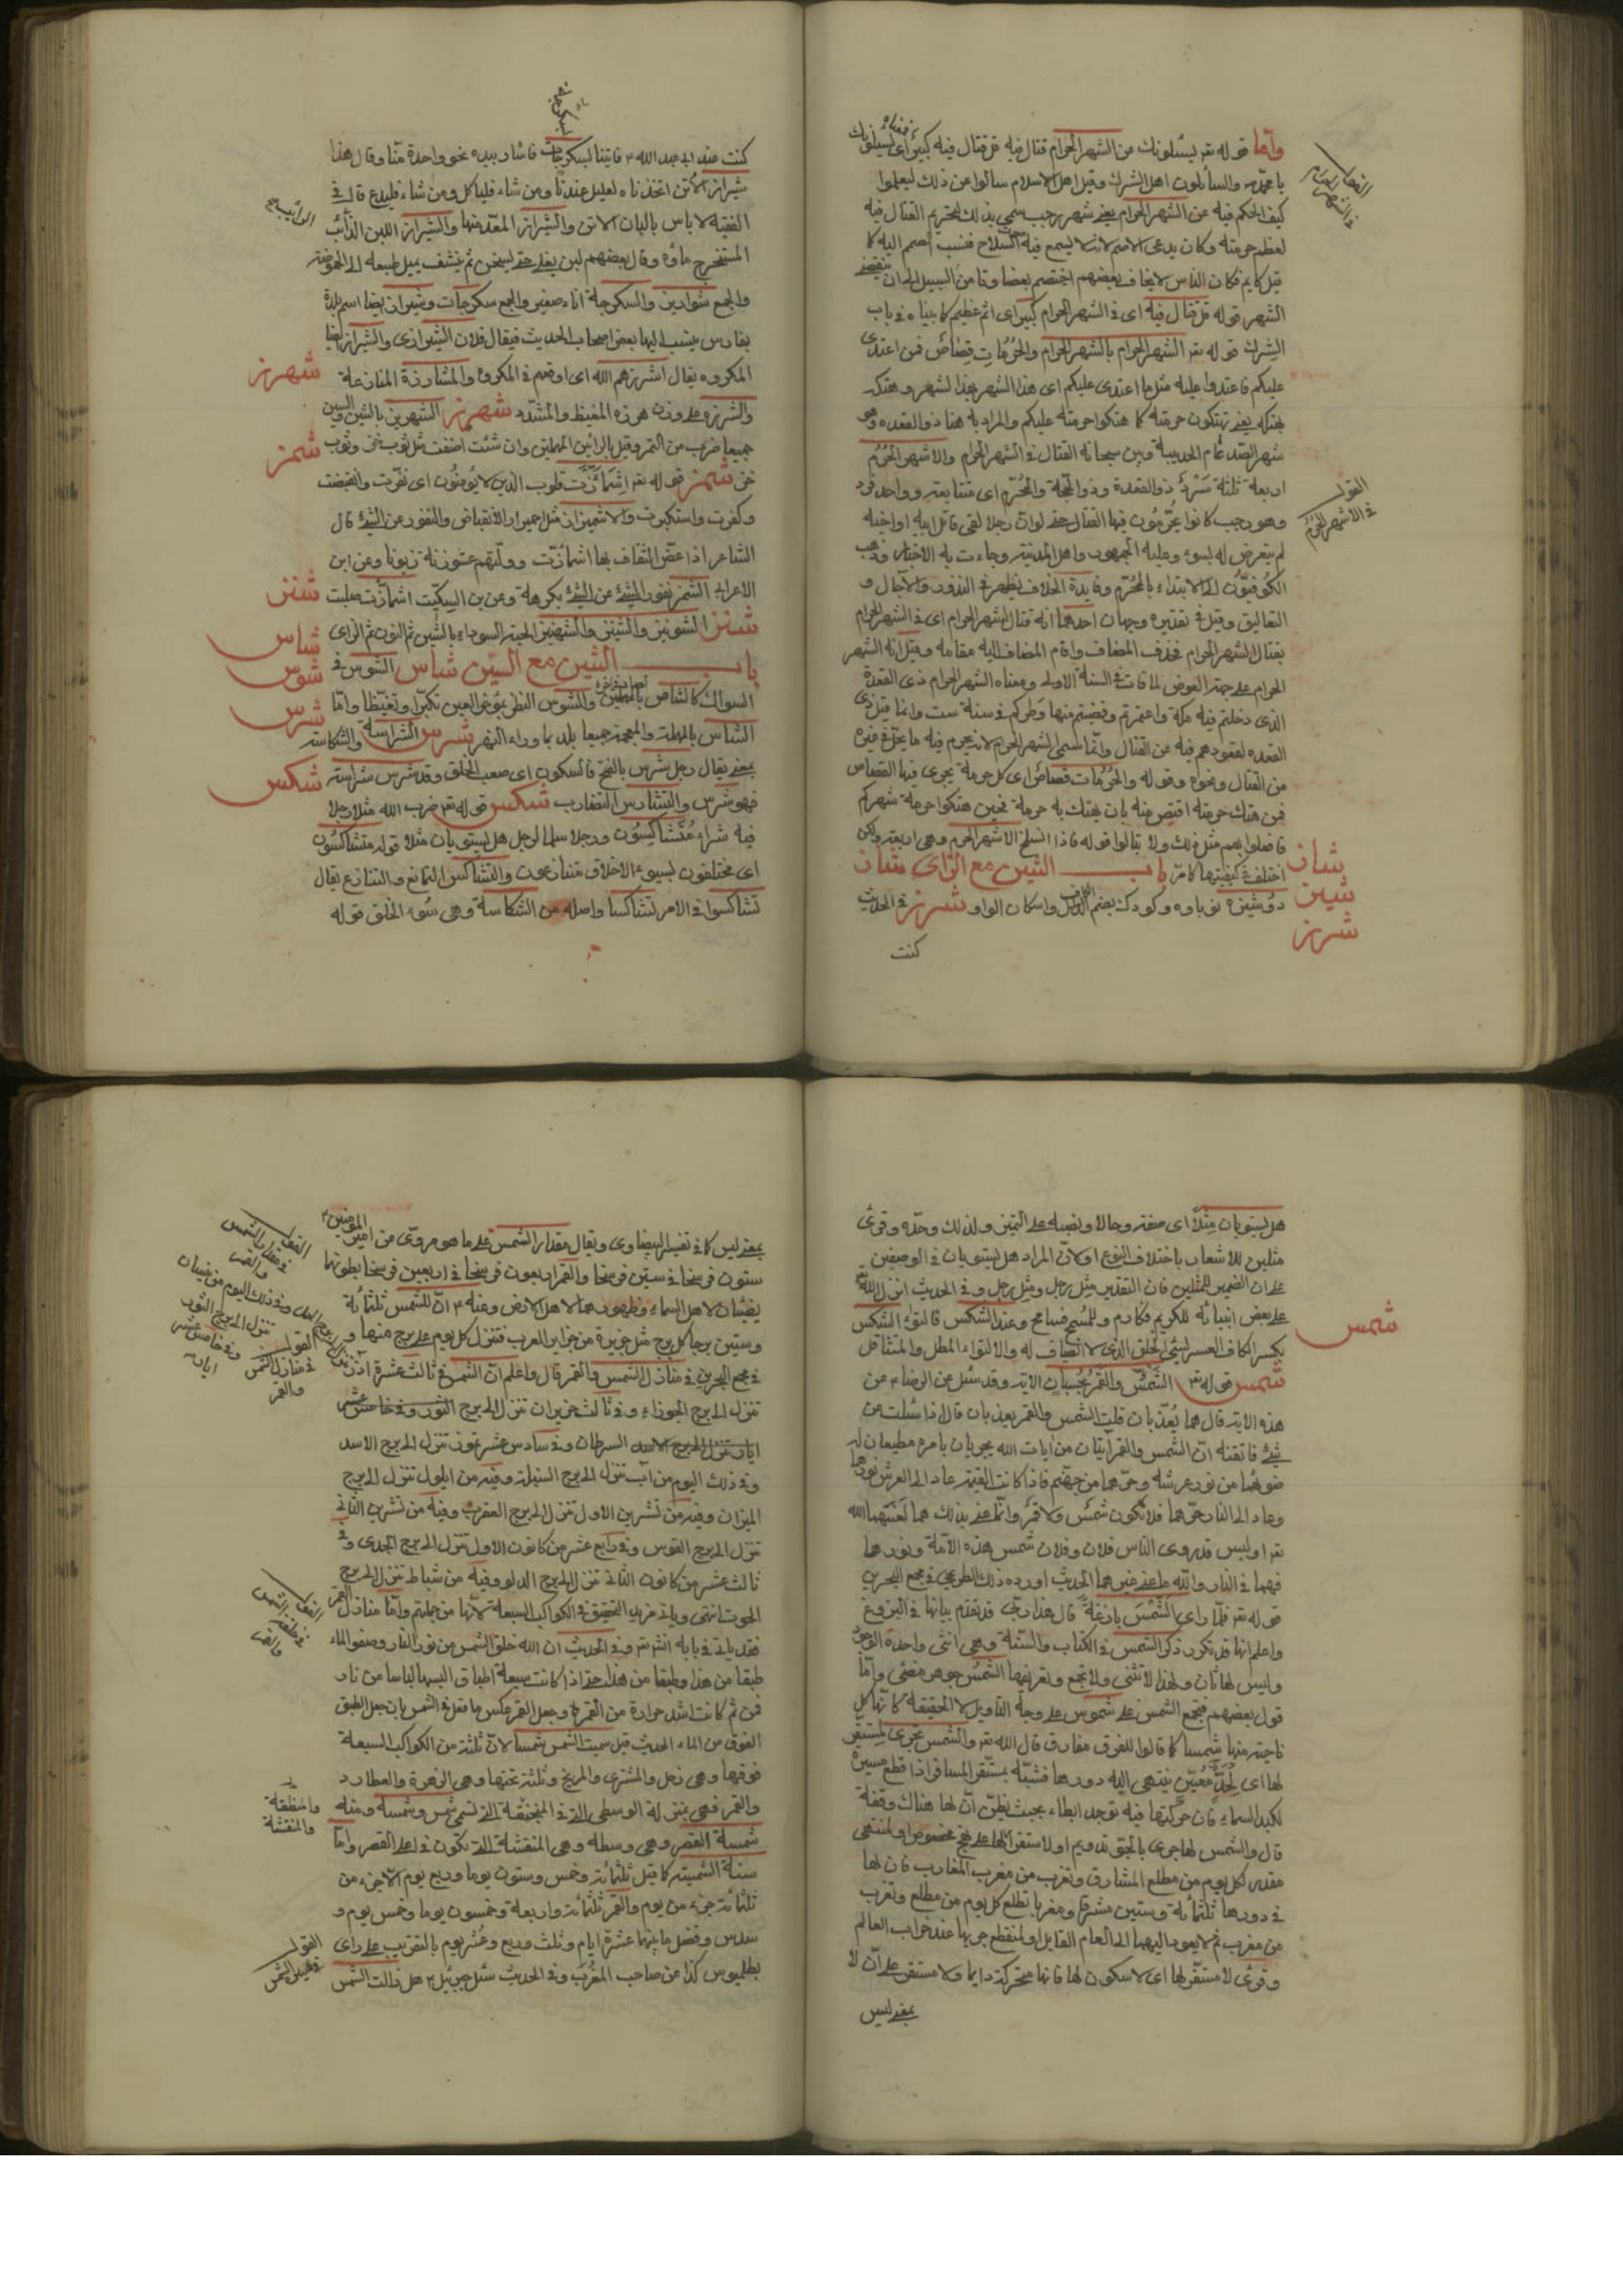 واما قوله تعـ يسئلونك عن الشهر الحرام قتال فيه قل قتال فيه كبير اى يسئلونك
يا محمد والسائلون اهل الشرك وقيل اهل الاسلام سالوا عن ذلك ليعلموا
كيف الحكم فيه عن الشهر الحرام يعنى شهر رجب سمى بذلك لتحريم القتال فيه
لعظم حرمته وكان يدعى الاصم لانه لا يسمع فيه السلاح فنسب الصم اليه كما
قيل نايم فكان الناس لا يخاف بعضهم بعضا وتا من السبيل الى ان ينقضى
الشهر قوله قل قتال فيه اى فى الشهر الحرام كبير اى اثم عظيم كما بيناه فى باب
الشرك قوله تعـ الشهر الحرام بالشهر الحرام والحرمات قصاص فمن اعتدى
عليكم فاعتدوا عليه مثل ما اعتدى عليكم اى هذا الشهر بهذا لشهر وهتكه
بهتكه يعنى تهتكون حرمته كما هتكوا حرمته عليكم والمراد به هنا ذو القعده وهو
شهر الصد عام الحديبية وبين سبحانه القتال فى الشهر الحرام والاشهر الحرم
اربعة ثلثة سرد ذو القعدة وذو الحجة والمحرم اى متتابعة وواحد فرد
وهو رجب كانوا يحرمون فيها القتال حتى لو ان رجلا لقى قاتل ابيه او اخيه
لم يتعرض له بسوء وعليه الجمهور واهل المدينة وجاءت به الاخبار وذهب
الكوفيون الى الابتداء بالمحرم وفايدة الخلاف تظهر فى النذور والآجال و
التعاليق وقيل فى تقديره وجهان احدهما انه قتال الشهر الحرام اى فى الشهر الحرام
بقتال الشهر الحرام فحذف المضاف واقام المضاف اليه مقامه وقيل انه الشهر
الحرام على جهة العوض لما فات فى السنة الاولى ومعناه الشهر الحرام ذى القعدة
الذى دخلتم فيه مكة واعتمرتم وقضيتم منها وطركم فى سنة ست وانما قيل ذى
القعده لقعودهم فيه عن القتال وانما سمى الشهر الحرام لانه يحرم فيه ما يحل فى غيره
من القتال ونحوه وقوله والحرمات قصاص اى كل حرمة يجرى فيها القصاص
فمن هتك حرمته اقتص منه بان يهتك به حرمة فحين هتكوا حرمة شهركم
فافعلوا بهم مثل ذلك ولا تبالوا قوله فاذا انسلخ الاشهر الحرم وهى اربعة ولكن
اختلف فى كيفيتها كما مر باب الشين مع الزاى شاز
نوباوه وكودك بضم الكاف واسكان الواو شرز فى الحديث
كنت
القول
فى الاشهر الحرم
شاز
شيز
شرز
كنت عند ابى عبد الله ع فاتينا بسكرجات فاشار بيده نحو واحدة منا وقال هذا
شيراز الاتن اتخذناه لعليل عندنا ومن شاء فلياكل ومن شاء فليدع قال فى
الفقيه لا باس بالبان الاتن والشيراز المعد منها والشيراز اللبن الرائب
المستخرج ماؤه وقال بعضهم لبن يغلى حتى يسخن ثم ينشف يميل طبعه الى الحموضة
والجمع شوارين والسكرجة اناء صغير والجمع سكرجات وشيراز ايضا اسم بلدة
بفارس ينسب اليها بعض اصحاب الحديث فيقال فلان الشيرازى والشيراز ايضا
المكروه يقال اشرزهم الله اى اوقعهم فى المكروه والمشارزة المنازعة
شهرز الشهريز بالشين والسين
جميعا ضرب من التمر وقيل بالرائين المهملتين وان شئت اضفت مثل ثوب خز وثوب
خز شمز قوله تعـ اشمازت قلوب الذين لا يؤمنون اى نفرت وانقبضت
وكفرت واستكبرت والاشميزاز مثل احميرار الانقباض والنفور عن الشئ قال
الشاعر اذا عض الثقاف بها اشمازت وولتهم عشوزنة زبونا وعن ابن
الاعرابى الشمز نفور الشئ عن الشئ بكرهه وعن بن السكيت اشمازت صلبت
شنز الشونيز والشينيز والشهنيز الحبة السوداء بالشين ثم النون ثم الزاى
باب الشين مع السين شاس الشوس فى
السواك كالشاص والشوس النظر بمؤخر العين تكبرا وتغيظا واما
الشاس بالمهملة والمعجمة جميعا بلد بما وراء النهر شرس الشراسة والشكاسة
بمعنى يقال رجل شرس بالفتح فالسكون اى صعب الخلق وقد شرس شراسة
فهو شرس والتشارس التضارب شكس قوله تعـ ضرب الله مثلا رجلا
فيه شركاء متشاكسون ورجلا سلما لرجل هل يستويان مثلا قوله متشاكسون
اى مختلفون لسوء الاخلاق متنازعون والتشاكس التمانع والتنازع يقال
تشاكسوا فى الامر تشاكسا واصله من الشكاسة وهى سوء الخلق قوله
شهرز
شمز
شنز
شاس
شوس
شرس
شكس
هل يستويان مثلا اى صفة وحالا ونصبه على التميز ولذلك وحده وقرئ
مثلين للاشعار باختلاف النوع او لان المراد هل يستويان فى الوصفين
على ان الضمير للمثلين فان التقدير مثل رجل ومثل رجل وفى الحديث انزل الله تعـ
على بعض انبيائه للكريم فكارم وللسمح فسامح وعند الشكس فالتو الشكس
بكسر الكاف العسر السئ الخلق الذى لا انصاف له والالتواء المطل والمتثاقل
شمس قوله تعـ الشمس والقمر بحسبان الاية وقد سئل عن الرضا ع عن
هذه الاية قال هما يعذبان قلت الشمس والقمر يعذبان قال اذا سئلت عن
شئ فاتقنه ان الشمس والقمر آيتان من ايات الله يجريان بامره مطيعان له
ضوئهما من نور عرشه وحرهما من جهنم فاذا كانت القيمة عاد الى العرش نورهما
وعاد الى النار حرهما فلا تكون شمس ولا قمر وانما عنى بذلك هما لعنهما الله
تعـ اوليس قد روى الناس فلان وفلان شمس هذه الامة ونورها
فهما فى النار والله ما عنى غيرهما الحديث اورده ذلك الطريحى فى مجمع البحرين
قوله تعـ فلما راى الشمس بازغة قال هذا ربى قد تقدم بيانها فى البزوغ
واعلم انها قد تكرر ذكر الشمس فى الكتاب والسنة وهى انثى واحدة الوجود
وليس لها ثان ولهذا لا تثنى ولا تجمع وتعريفها الشمس جوهر مضئ واما
قول بعضهم فتجمع الشمس على شموس على وجه التاويل لا الحقيقة كانها كل
ناحية منها شمسا كما قالوا للفرق مفارق قال الله تعـ والشمس تجرى لمستقر
لها اى لحد معين ينتهى اليه دورها فشبه بمستقر المسافر اذا قطع مسيره
لكبد السماء فان حركتها فيه توجد ابطاء بحيث يظن ان لها هناك وقفة
قال والشمس لها جرى بالجو تدويم او لاستقرار لها على نهج مخصوص او لمنتهى
مقدر لكل يوم من مطلع المشارق وتغرب من مغرب المغارب فان لها
فى دورها ثلثمائة وستين مشرقا ومغربا تطلع كل يوم من مطلع وتغرب
من مغرب ثم لا يعود اليهما الى العام القابل او لمنقطع جريها عند خراب العالم
وقرئ لا مستقر لها اى لا سكون لها فانها متحركة دايما ولا مستقر على ان لا
بمعنى ليس
شمس
بمعنى ليس كما فى تفسير البيضاوى ويقال مقدار الشمس على ما هو مروى عن امير المؤمنين ع
ستون فرسخا فى ستين فرسخا والقمر اربعون فرسخا فى اربعين فرسخا بطونهما
يضيئان لاهل السماء وظهورهما لاهل الارض وعنه ع ان للشمس ثلثمائة
وستين برجا كل برج مثل جزيرة من جزاير العرب فتنزل كل يوم على برج منها و
فى مجمع البحرين فى منازل الشمس والقمر قال واعلم ان الشمس فى ثالث عشرة آذر
تنزل الى برج الجوزاء وفى ثالث حزيران تنزل الى برج الثور وفى خامس عشر
ايار تنزل الى برج الاسد السرطان وفى سادس عشر تموز تنزل الى برج الاسد
وفى ذلك اليوم من آب تنزل الى برج السنبلة وفيه من ايلول تنزل الى برج
الميزان وفيه من تشرين الاول تنزل الى برج العقرب وفيه من تشرين الثانى
تنزل الى برج القوس وفى رابع عشر من كانون الاول تنزل الى برج الجدى وفى
ثالث عشر من كانون الثانى تنزل الى برج الدلو وفيه من شباط تنزل الى برج
الحوت انتهى وياتى مزيد التحقيق فى الكواكب السبعة لانها من جملتهم واما منازل القمر
فقد ياتى فى بابه انشـ تعـ وفى الحديث ان الله خلق الشمس من نور النار وصفو الماء
طبقا من هذا وطبقا من هذا حتى اذا كانت سبعة اطباق البسها لباسا من نار
فمن ثم كانت اشد حرارة من القمر وجعل القمر عكس ما فعل فى الشمس بان جعل الطبق
الفوق من الماء الحديث قيل سميت الشمس شمسا لان ثلثة من الكواكب السبعة
فوقها وهى زحل والمشترى والمريخ وثلثة تحتها وهى الزهرة والعطارد
والقمر فهى بمنزلة الوسطى التى فى المخنقة التى تسمى شمس وشمسة ومنه
شمسة القصر وهى وسطه وهى المنقشة التى تكون فى اعلى القصر واما
سنة الشمسية كما قيل ثلثمائة وخمس وستون يوما وربع يوم الا جزء من
ثلثمائة جزء من يوم والقمر ثلثمائة واربعة وخمسون يوما وخمس يوم و
سدس وفضل ما بينهما عشرة ايام وثلث وربع وعشر يوم بالتقريب على راى
بطلميوس كذا عن صاحب المغرب وفى الحديث سئل جبرئيل ع هل زالت الشمس
القول
فى منازل الشمس
والقمر